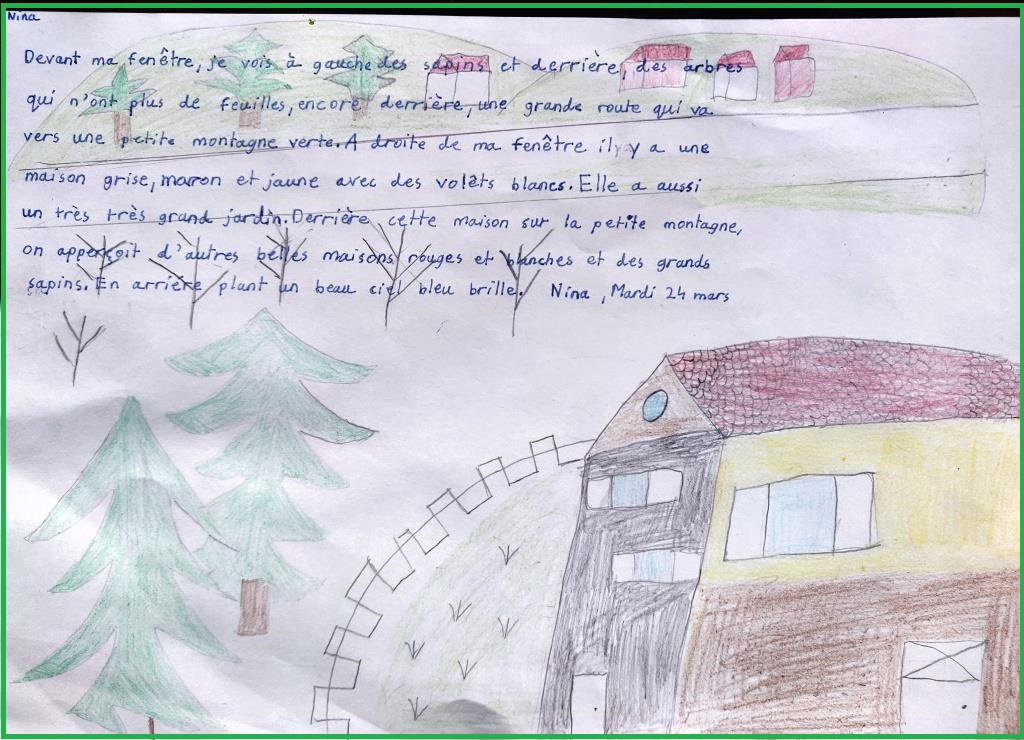 Nina
Devant ma fenêtre, je vois à gauche des sapins et derrière, des arbres
qui n'ont plus de feuilles, encore derrière, une grande route qui va
vers une petite montagne verte. A droite de ma fenêtre il y a une
maison grise, marron et jaune avec des volets blancs. Elle a aussi
un très très grand jardin. Derrière cette maison sur la petite montagne,
on apperçoit d'autres belles maisons rouges et blanches et des grands
sapins. En arrière plant un beau ciel bleu brille. Nina, Mardi 24 mars